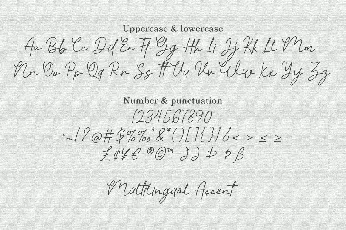 Uppercase & lowercase
Aa Bb Cc Dd Ee Ff Gg Hh Ii Jj Kk Ll Mm
Nn Oo Pp Qq Rr Ss Tt Uu Vv Ww Xx Yy Zz
Number & punctuation
1234567890
~!?@#$%‰^&*()[]{}|6<>≤≥
£¢¥€®©™
Multilingual Accent